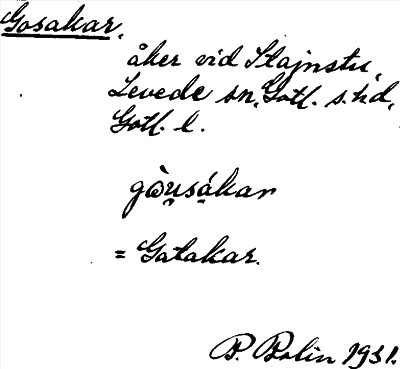 Gosakar,
åker vid Stajnstu,
Levede sn, Gotl. s. hd,
Gotl. l.
gòu̯sákar
= Gatakar.
B. Bolin 1931.